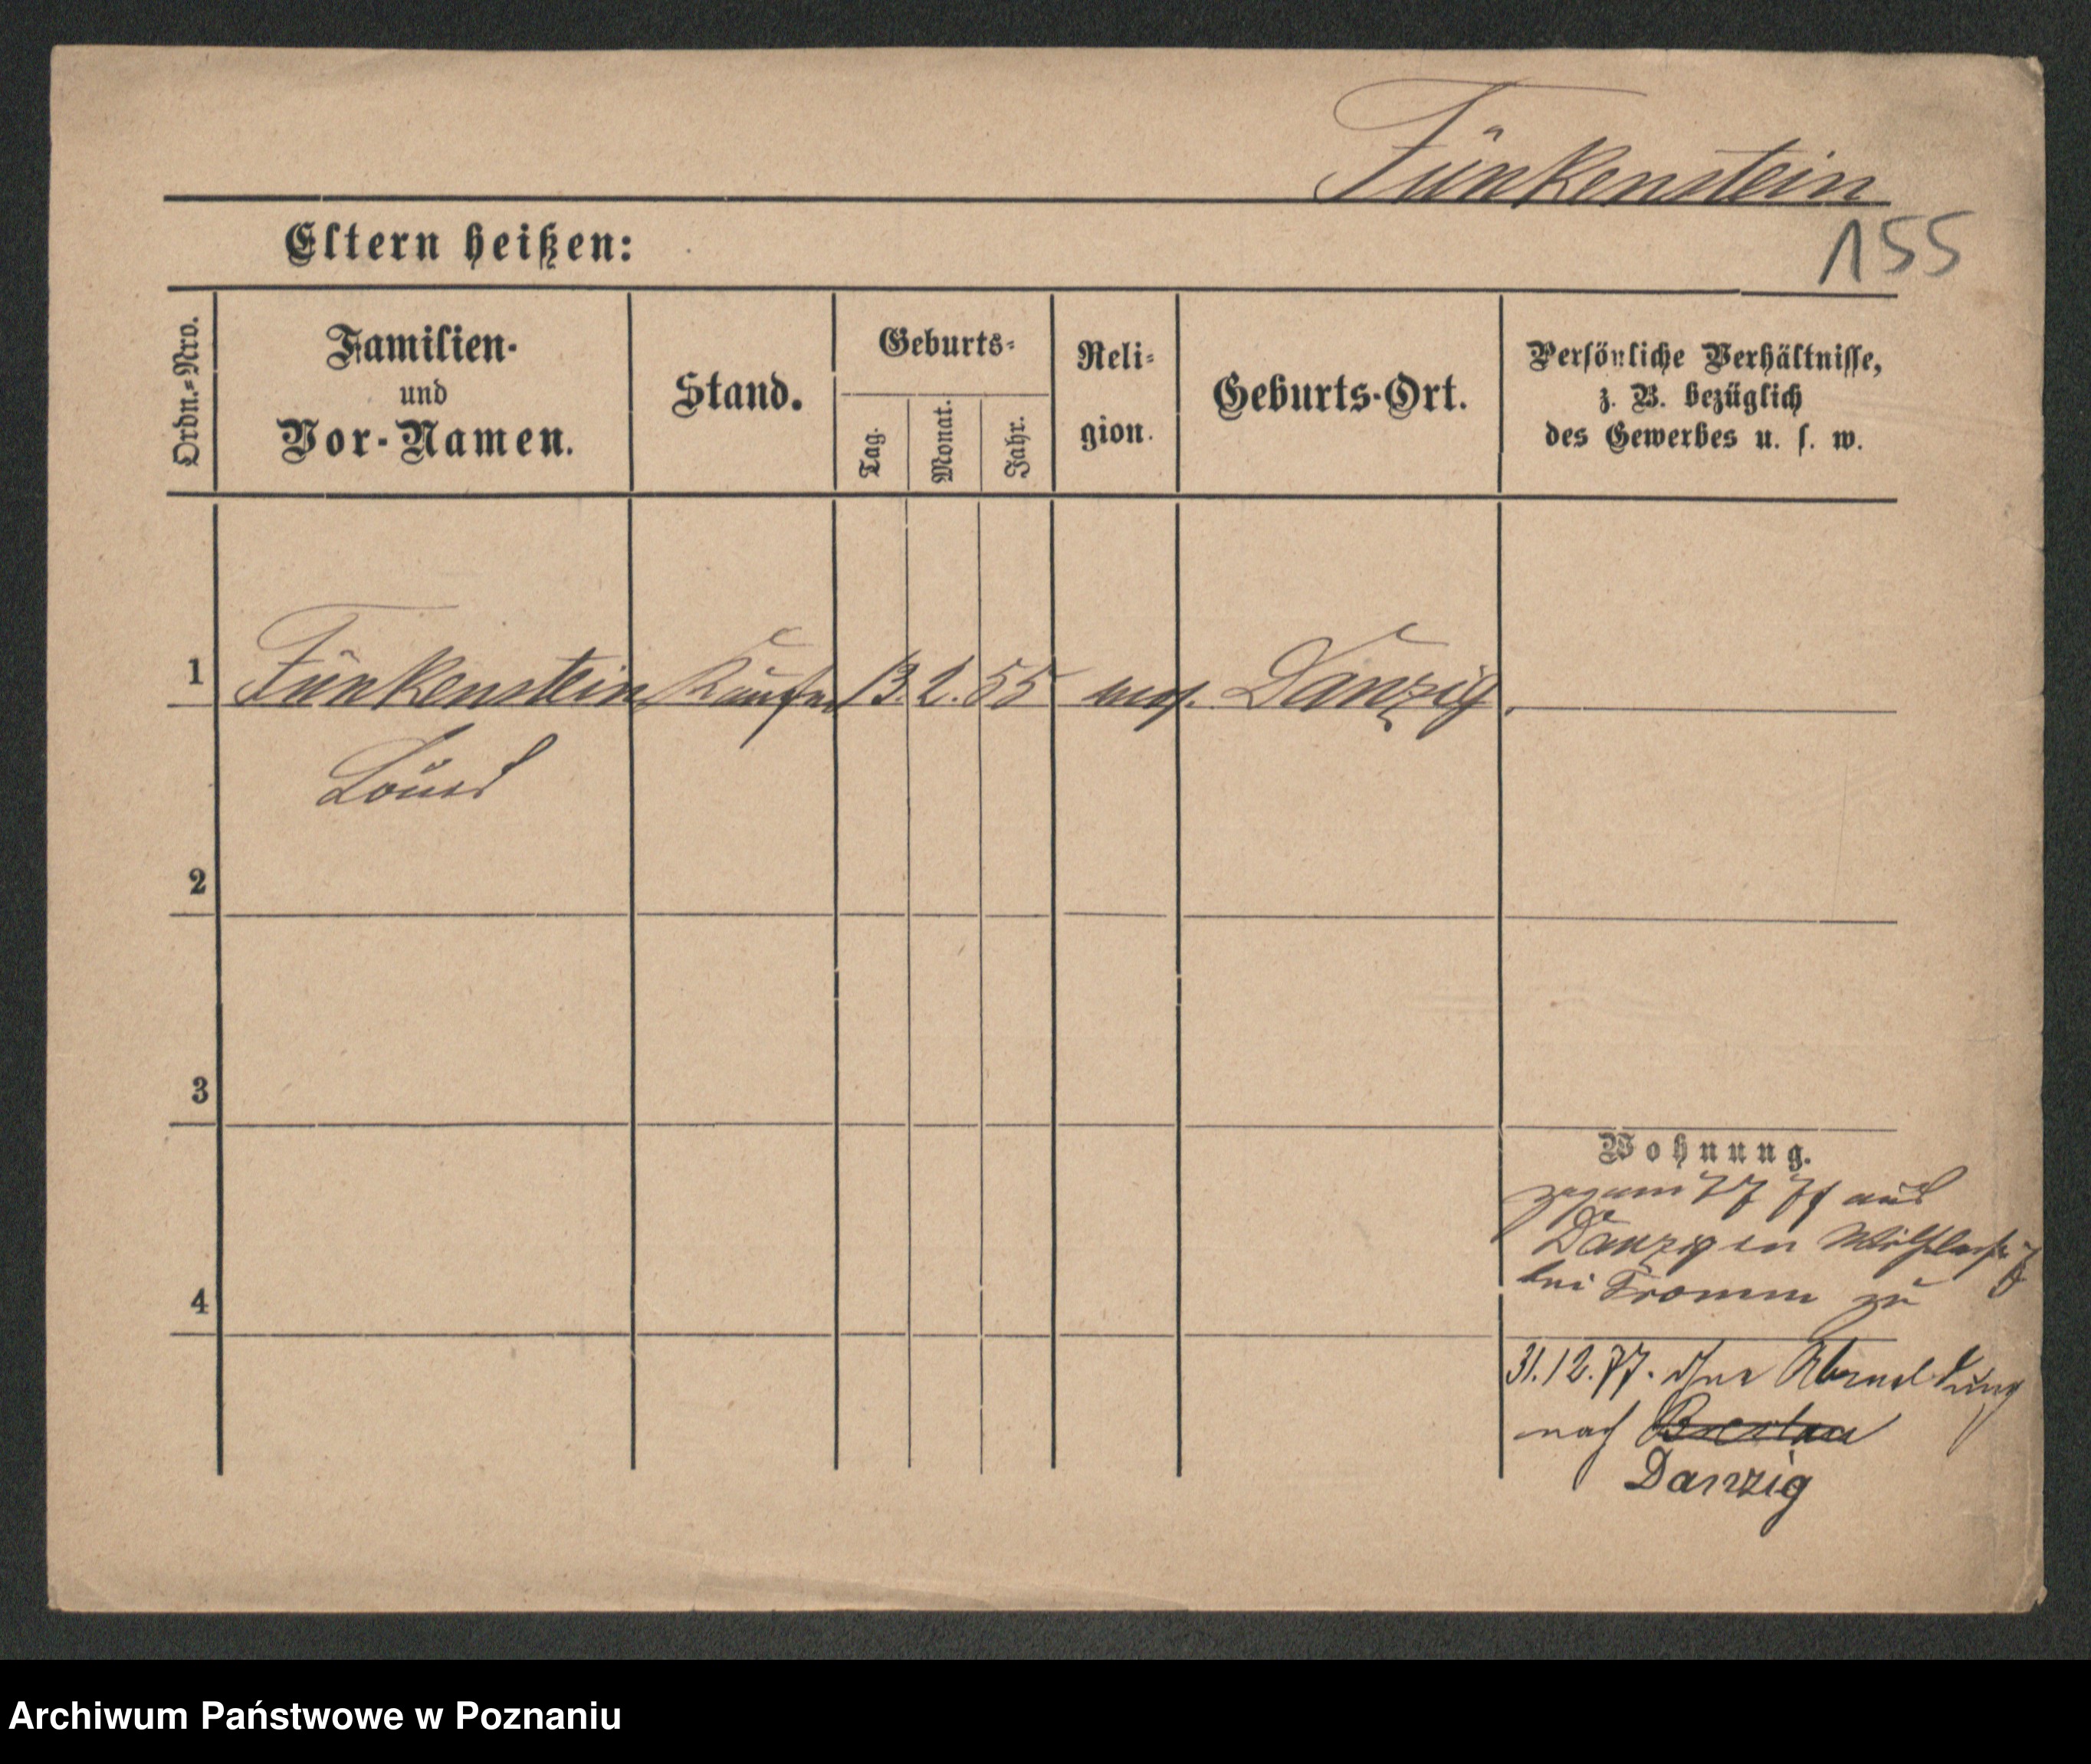 Funkenstein
155
Eltern heißen:
Ordn.=Nro.
Familien-
und
Vor-Namen.
Stand.
Geburts=
Tag.
Monat.
Jahr.
Reli=
gion.
Geburts-Ort.
Persönliche Verhältnisse,
z. B. bezüglich
des Gewerbes u. s. w.
1 Funkenstein Kaufm 13. 2. 55 mos. Danzig
Louis
2
3
Wohnung.
77 aus
Danzig in
bei Fromm zu
4
31.12.77. Abmeldung
nach Breslau
Danzig
Archiwum Państwowe w Poznaniu